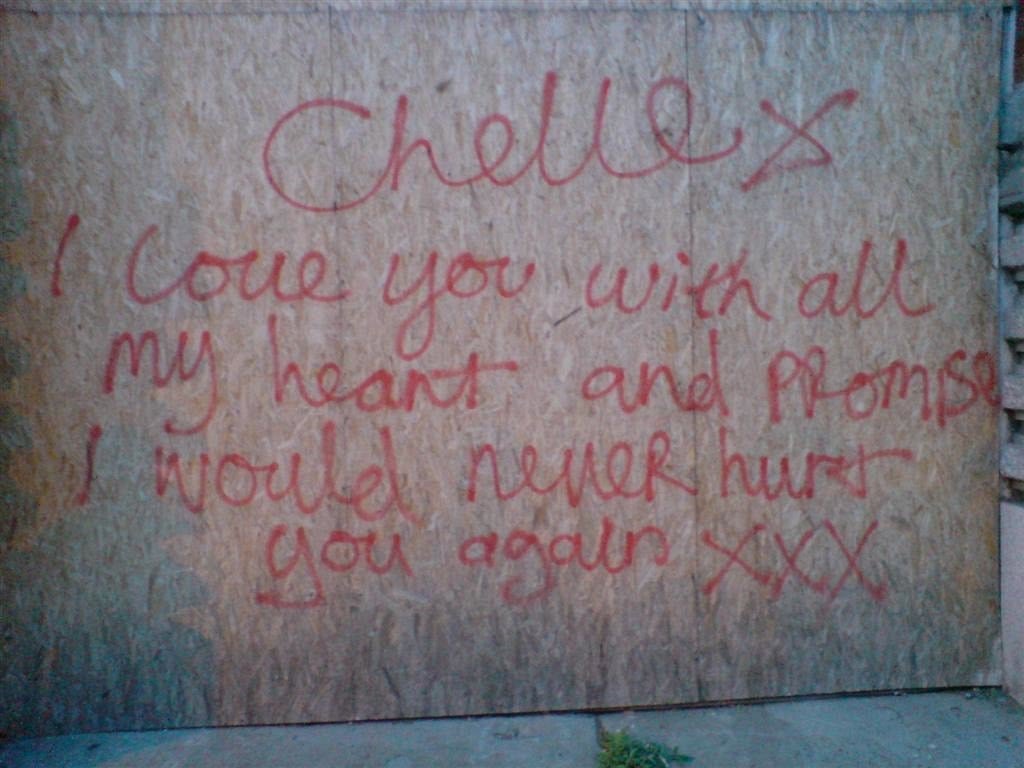 Chelle x
I love you with all
my heart and PROMISe
I would never hurt
you again XXX